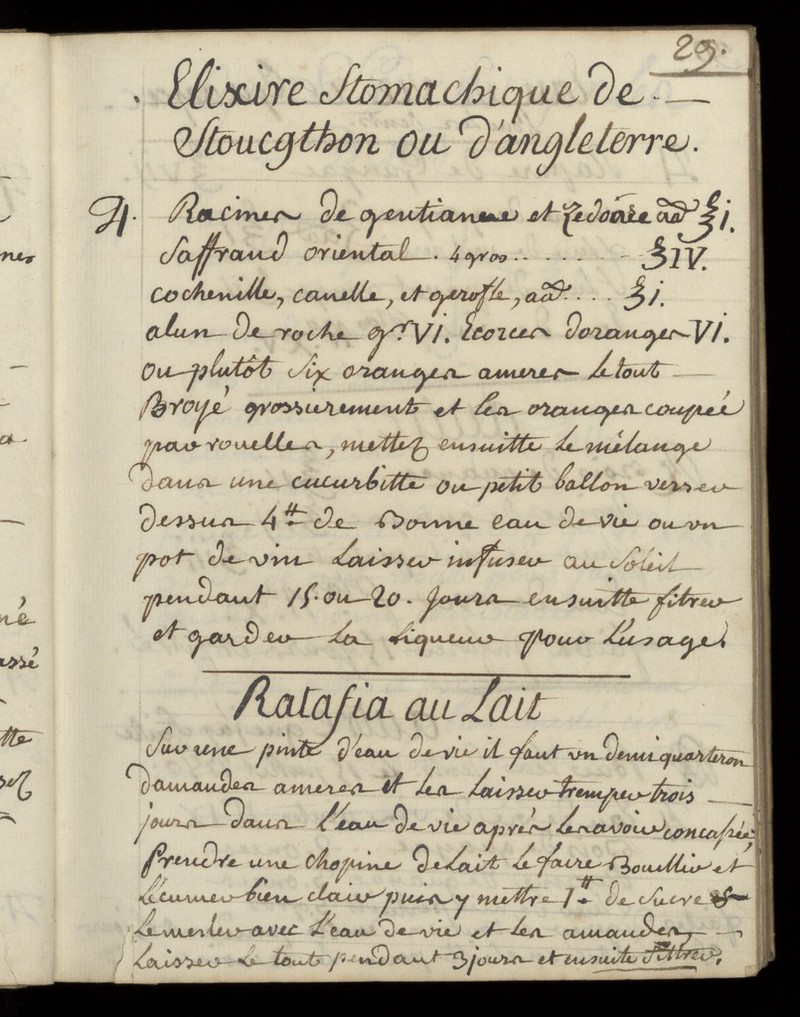 29.
Elixire Stomachique de
Stoucgthon ou d'angleterre.
♃. Racines de gentianne et Zedoáre aã ℥i.
Saffrand oriental. 4 gros ........ ℥IV.
cochenille, canelle, et gerofle, aã.... ℥i.
alun de roche gr. VI. Ecorces doranges VI.
ou plutôt Six oranges ameres Le tout
Broyé grossierement et les oranges coupéé
par rouelles, mettez ensuitte Le mélange
dans une cucurbitte ou petit ballon verser
dessus 4 ₶ de Bonne eau de vie ou un
pot de vin Laisser infuser au Soleil
pendant 15. ou 20. Jours ensuitte fitrer
et garder La Liqueur pour L'usage.
Ratafia au Lait
Sur une pinte d'eau de vie il faut un demi quarteron
damandes ameres et Les Laisser tremper trois
jours dans l'eau de vie aprés Les avoir concassée,
Prendre une chopine de Lait Le faire Bouellir et
L'écumer bien clair puis y mettre 1 ₶ de Sucre &
Le mesler avec L'eau de vie et Les amandes
Laisser Le tout pendant 3 jours et ensuite filtrer.
né
assé
tte